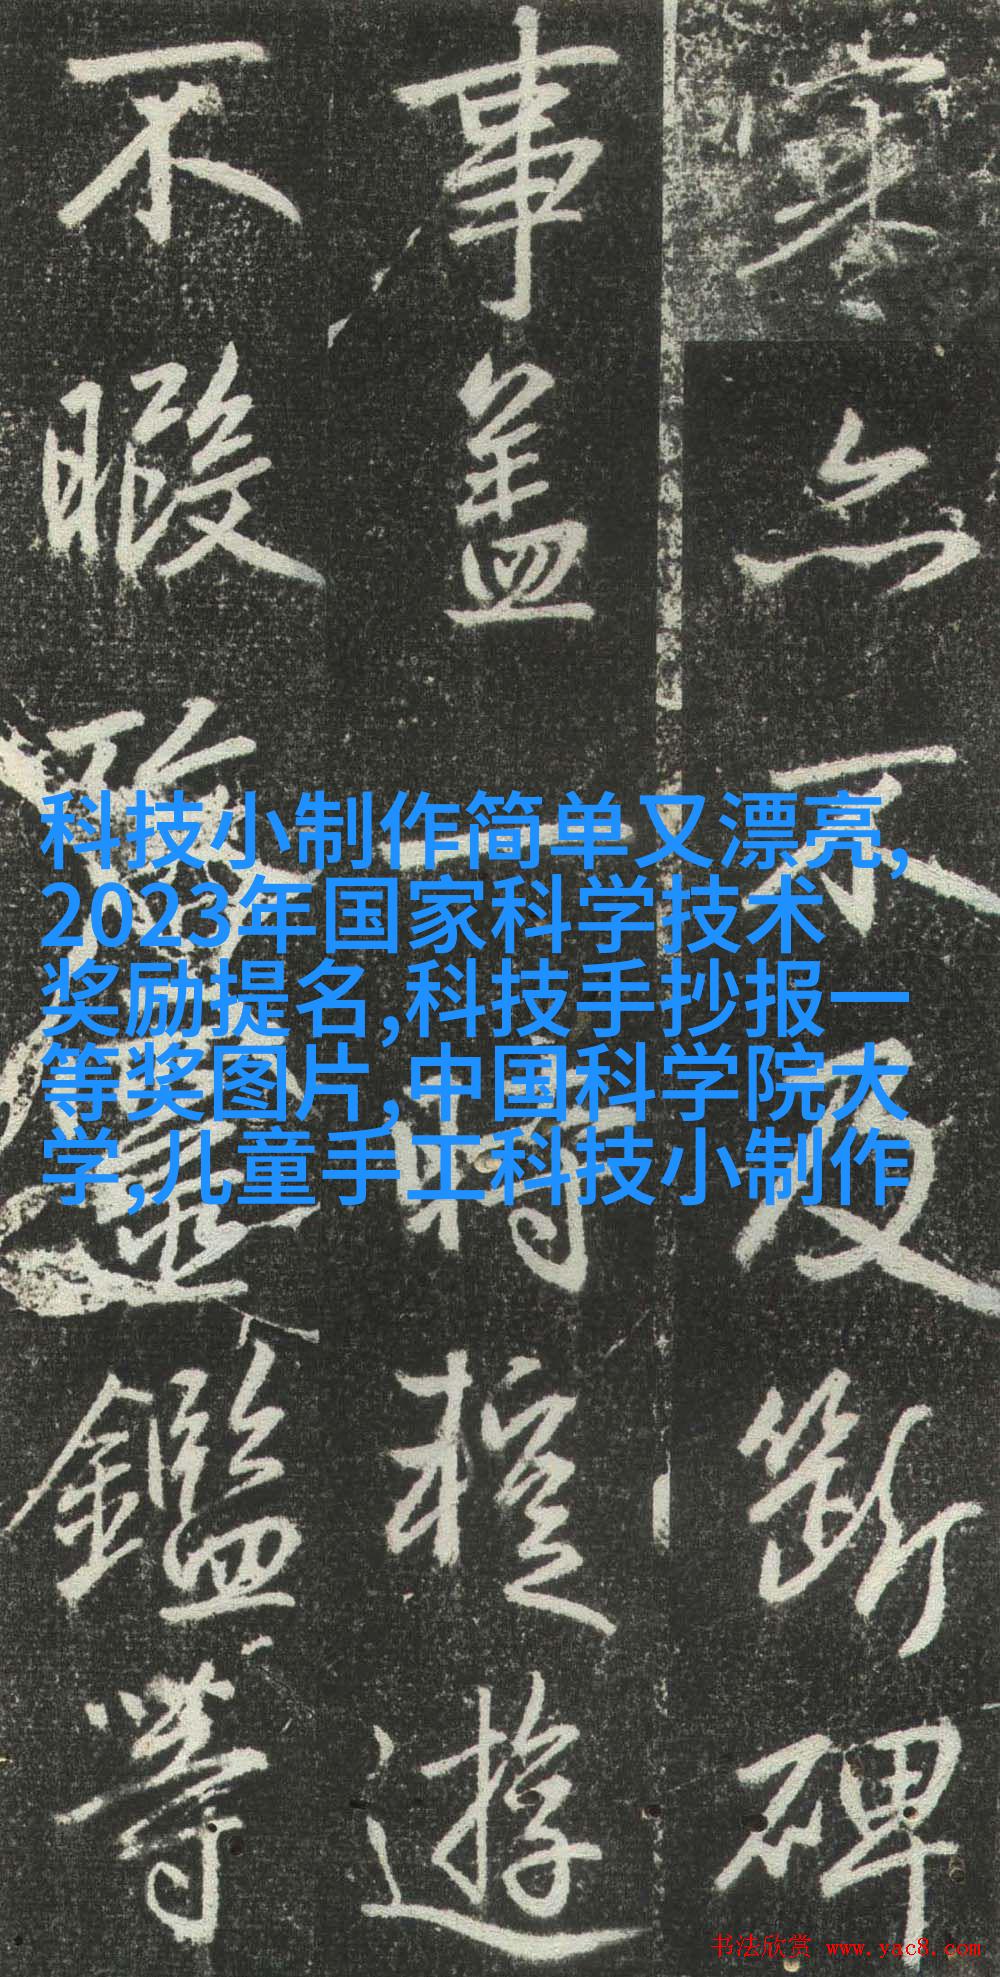 亦不及斷碑
事盖一時遊
不暇鑑等
科技小制作简单又漂亮,
2023年国家科学技术
奖励提名,科技手抄报一
等奖图片,中国科学院大
学,儿童手工科技小制作
书法欣赏 www.yac8.com